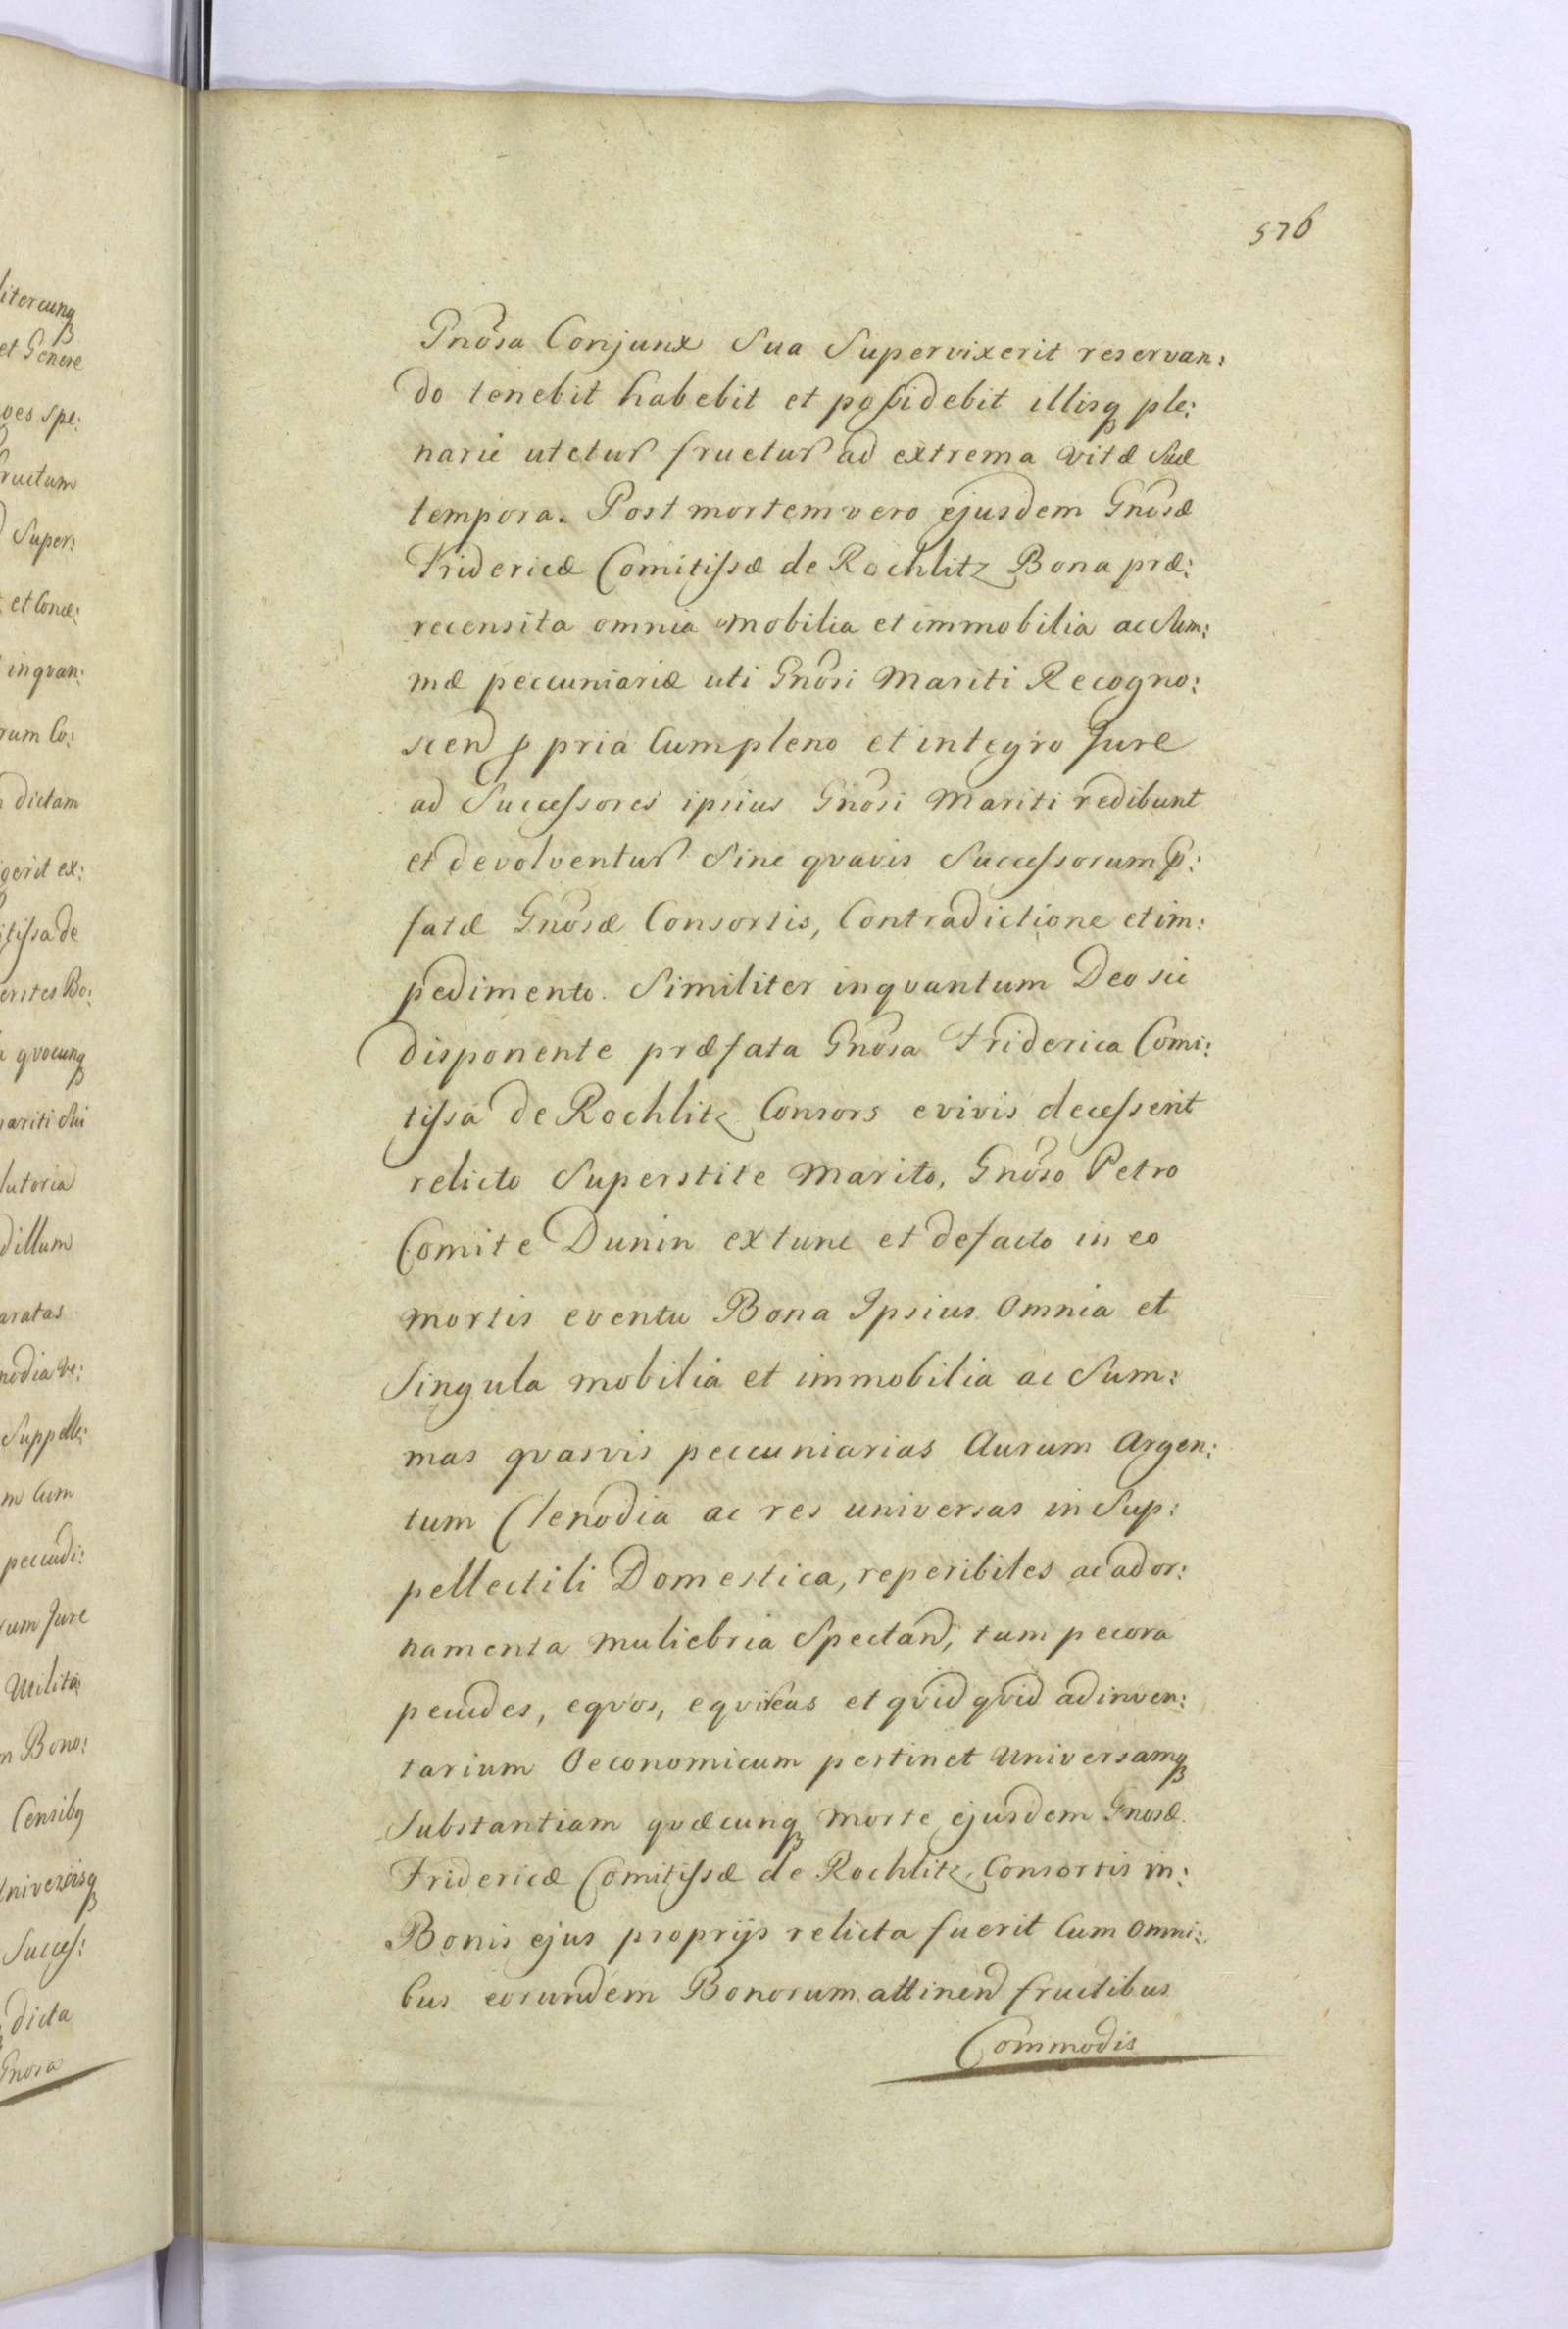 576
Gnosa Conjunx Sua Supervixerit reservan:
do tenebit habebit et possidebit illisq ple:
narie utetur fruetur ad extrema vitæ suæ
tempora. Post mortem vero ejusdem Gnosæ
Fridericæ Comitissæ de Rochlitz Bona præ:
recensita omnia mobilia et immobilia ac Sum:
mæ peccuniariæ uti Gnosi Mariti Recogno:
scen ppria Cum pleno et integro Jure
ad Successores ipsius Gnosi Mariti redibunt
et devolventur Sine qvavis Successorum p:
fatæ Gnosæ Consortis, Contradictione et im:
pedimento. Similiter inqvantum Deo sic
disponente præfata Gnosa Friderica Comi:
tissa de Rochlitz Consors e vivis decesserit
relicto Superstite Marito, Gnoso Petro
Comite Dunin extunc et defacto in eo
mortis eventu Bona Ipsius Omnia et
Singula mobilia et immobilia ac Sum:
mas qvasvis peccuniarias Aurum Argen:
tum Clenodia ac res universas in Sup:
pellectili Domestica, reperibiles ac ad or:
namenta muliebria Spectand, tum pecora
pecudes, eqvos, eqvireas et qvid qvid ad inven:
tarium Oeconomicum pertinet Universamq
Substantiam qvæcunq morte ejusdem Gnosæ
Fridericæ Comitissæ de Rochlitz, Consortis in:
Bonis ejus proprijs relicta fuerit Cum omni:
bus eorundem Bonorum attinend fructibus
Commodis